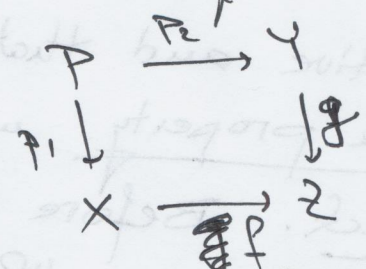 P P₂ Y
p₁ g
X f Z